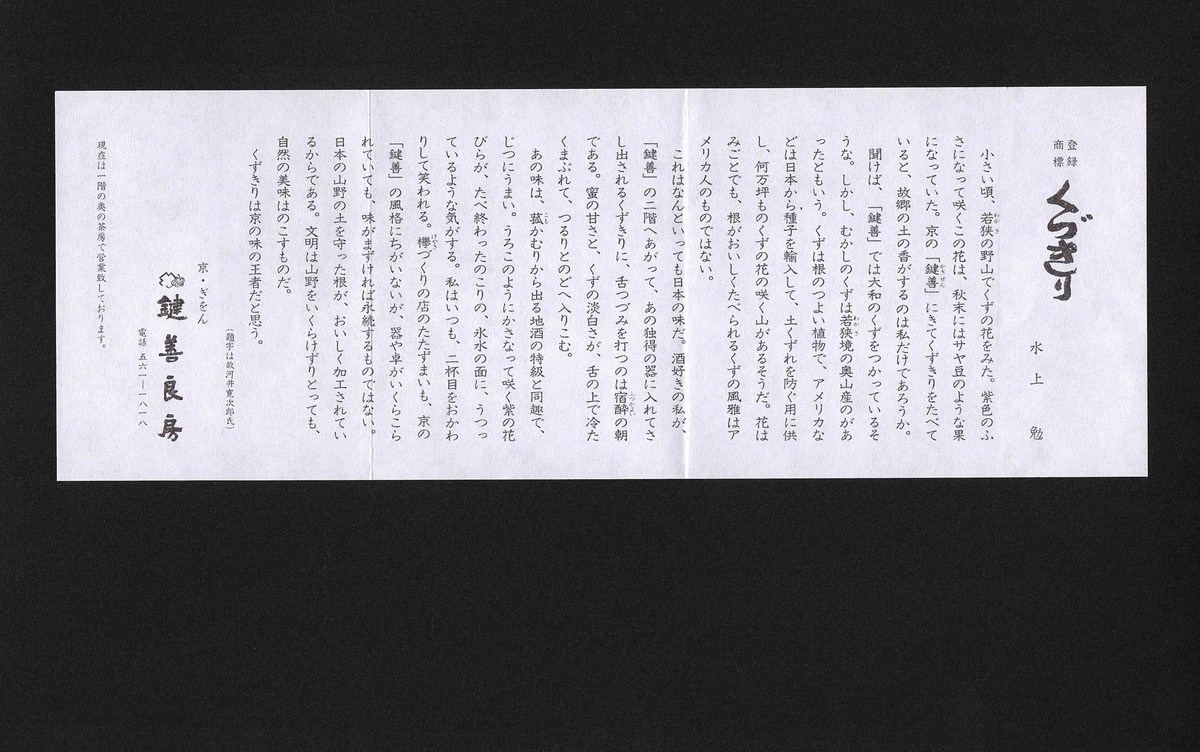 登録
商標
くづきり
水上　勉
小さい頃、若狭の野山でくずの花をみた。紫色のふ
さになって咲くこの花は、秋末にはサヤ豆のような果
になっていた。京の「鍵善」にきてくずきりをたべて
いると、故郷の土の香がするのは私だけであろうか。
聞けば、「鍵善」では大和のくずをつかっているそ
うな。しかし、むかしのくずは若狭境の奥山産のがあ
ったともいう。くずは根のつよい植物で、アメリカな
どは日本から種子を輸入して、土くずれを防ぐ用に供
し、何万坪ものくずの花の咲く山があるそうだ。花は
みごとでも、根がおいしくたべられるくずの風雅はア
メリカ人のものではない。
これはなんといっても日本の味だ。酒好きの私が、
「鍵善」の二階へあがって、あの独得の器に入れてさ
し出されるくずきりに、舌つづみを打つのは宿酔の朝
である。蜜の甘さと、くずの淡白さが、舌の上で冷た
くまぶれて、つるりとのどへ入りこむ。
あの味は、菰かむりから出る地酒の特級と同趣で、
じつにうまい。うろこのようにかさなって咲く紫の花
びらが、たべ終わったのこりの、氷水の面に、うつっ
ているような気がする。私はいつも、二杯目をおかわ
りして笑われる。欅づくりの店のたたずまいも、京の
「鍵善」の風格にちがいないが、器や卓がいくらこら
れていても、味がまずければ永続するものではない。
日本の山野の土を守った根が、おいしく加工されてい
るからである。文明は山野をいくらけずりとっても、
自然の美味はのこすものだ。
くずきりは京の味の王者だと思う。
（題字は故河井寛次郎氏）
京・ぎをん
鍵善良房
電話 五六一―一八一八
現在は一階の奥の茶房で営業致しております。